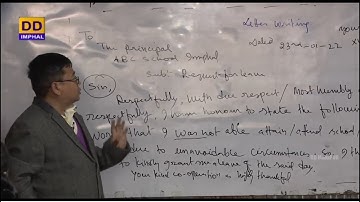 DD
IMPHAL
Letter Writing
To
Date 23rd-01-22
The principal
ABC School Imphal
Sub: Request for leave
Sir,
Respectfully, With due respect/ Most humbly
respectfully, I have honour to state the following
words that I was not able attain/ attend school
due to unavoidable circumstances. So, I
to kindly grant me a leave of the said day.
Your kind co-operation is highly thankful